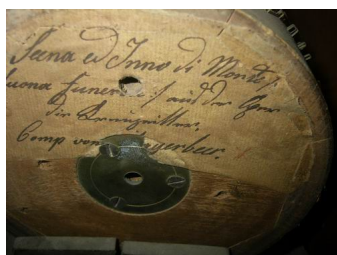 Scena ed Inno di Morte,
Suona funerea aus der Oper
die Kreuzritter.
Comp von Meyerbeer.